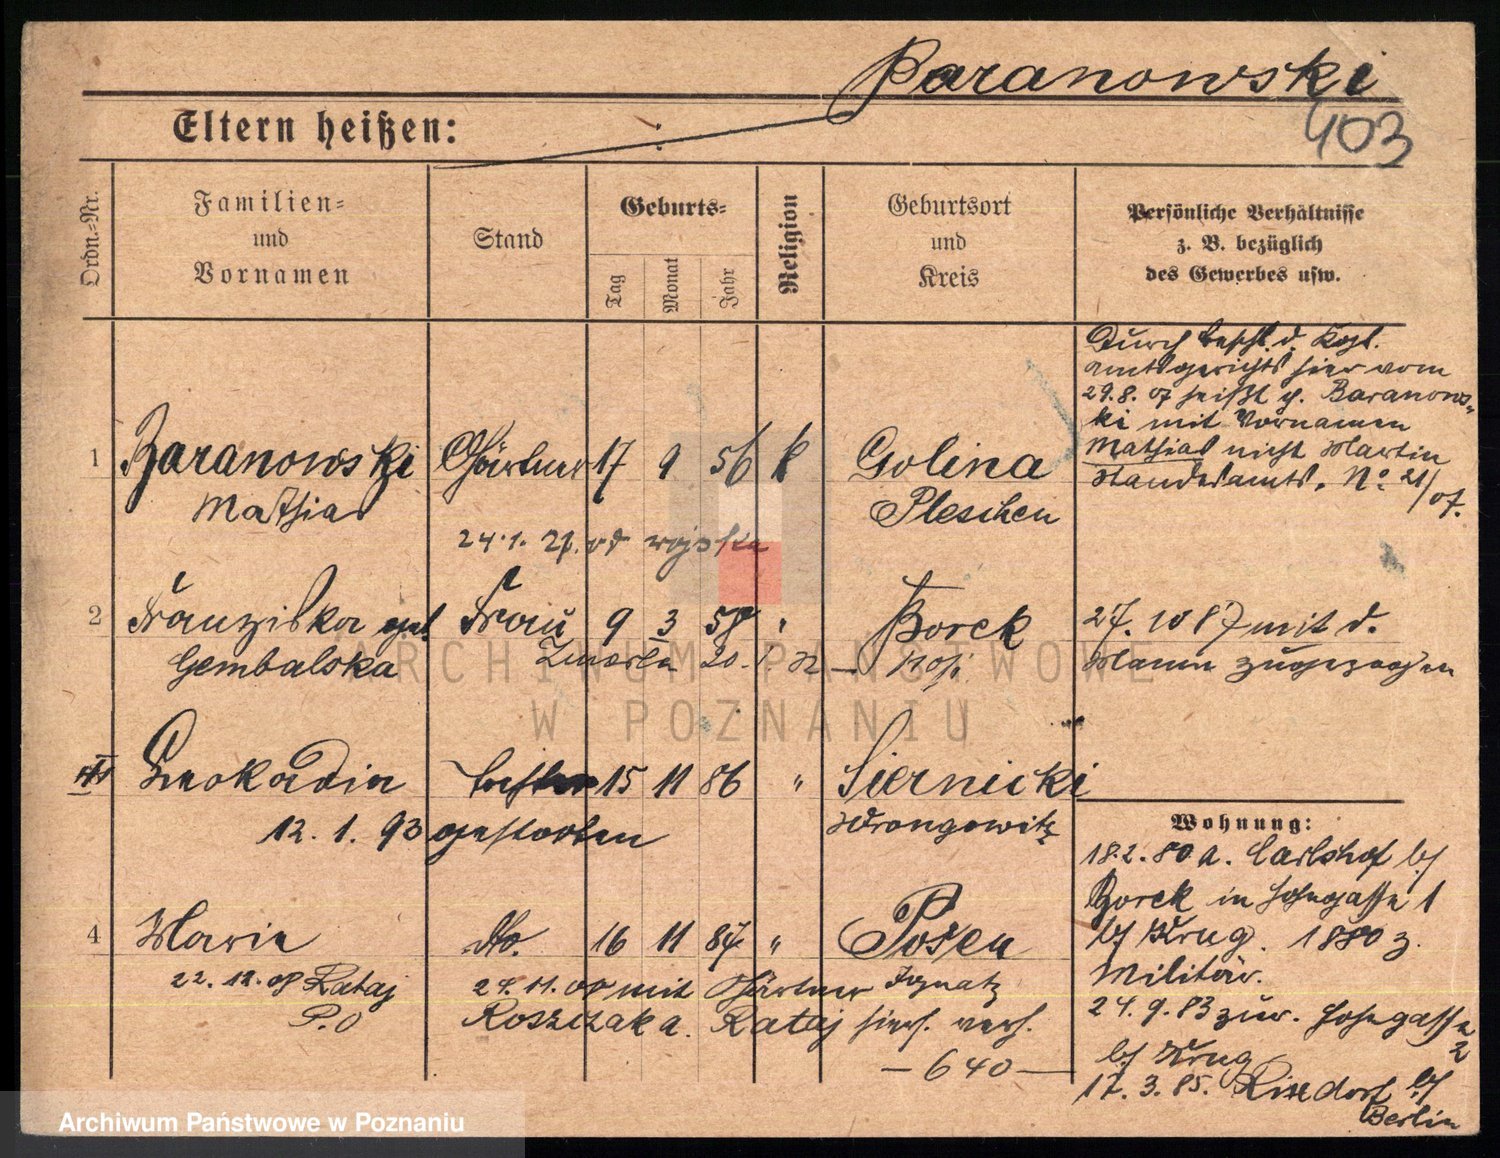 Baranowski
403
Eltern heißen:
Ordn.-Nr.
Familien-
und
Vornamen
Stand
Geburts-
Tag
Monat
Jahr
Religion
Geburtsort
und
Kreis
Persönliche Verhältnisse
z. B. bezüglich
des Gewerbes usw.
Durch Beschl. d. Kgl.
Amtsgerichts hier vom
29.8.07 heißt p. Baranows-
ki mit Vornamen
Mathias nicht Martin
Standesamts. No 21/07.
1 Baranowski Gärtner 17 9 56 k Golina
Mathias Pleschen
24.1.21. od wojska
2 Franziska geb. Frau 9 3 58 " Borek
Gembalska Zmarła 20.1. Kosch.
27. 10 87 mit d.
Mann zugezogen
Leokadia Tochter 15 11 86 " Siernicki
12. 1. 93 gestorben Wrongowitz
4 Marie do. 16 11 87 " Posen
22. 12. 08 Rataj
P.O
24.11.08 mit Gärtner Ignatz
Roszczak a. Rataj hierh. verh.
— 640 —
Wohnung:
18.2.80 a. Carlshof b/
Borek in Hohegasse 1
b/ Krug. 1880 z.
Militär.
24.9.83 zur. Hohegasse 2
b/ Krug
17.3.85. Rixdorf b/
Berlin
ARCHIWUM PAŃSTWOWE
W POZNANIU
Archiwum Państwowe w Poznaniu